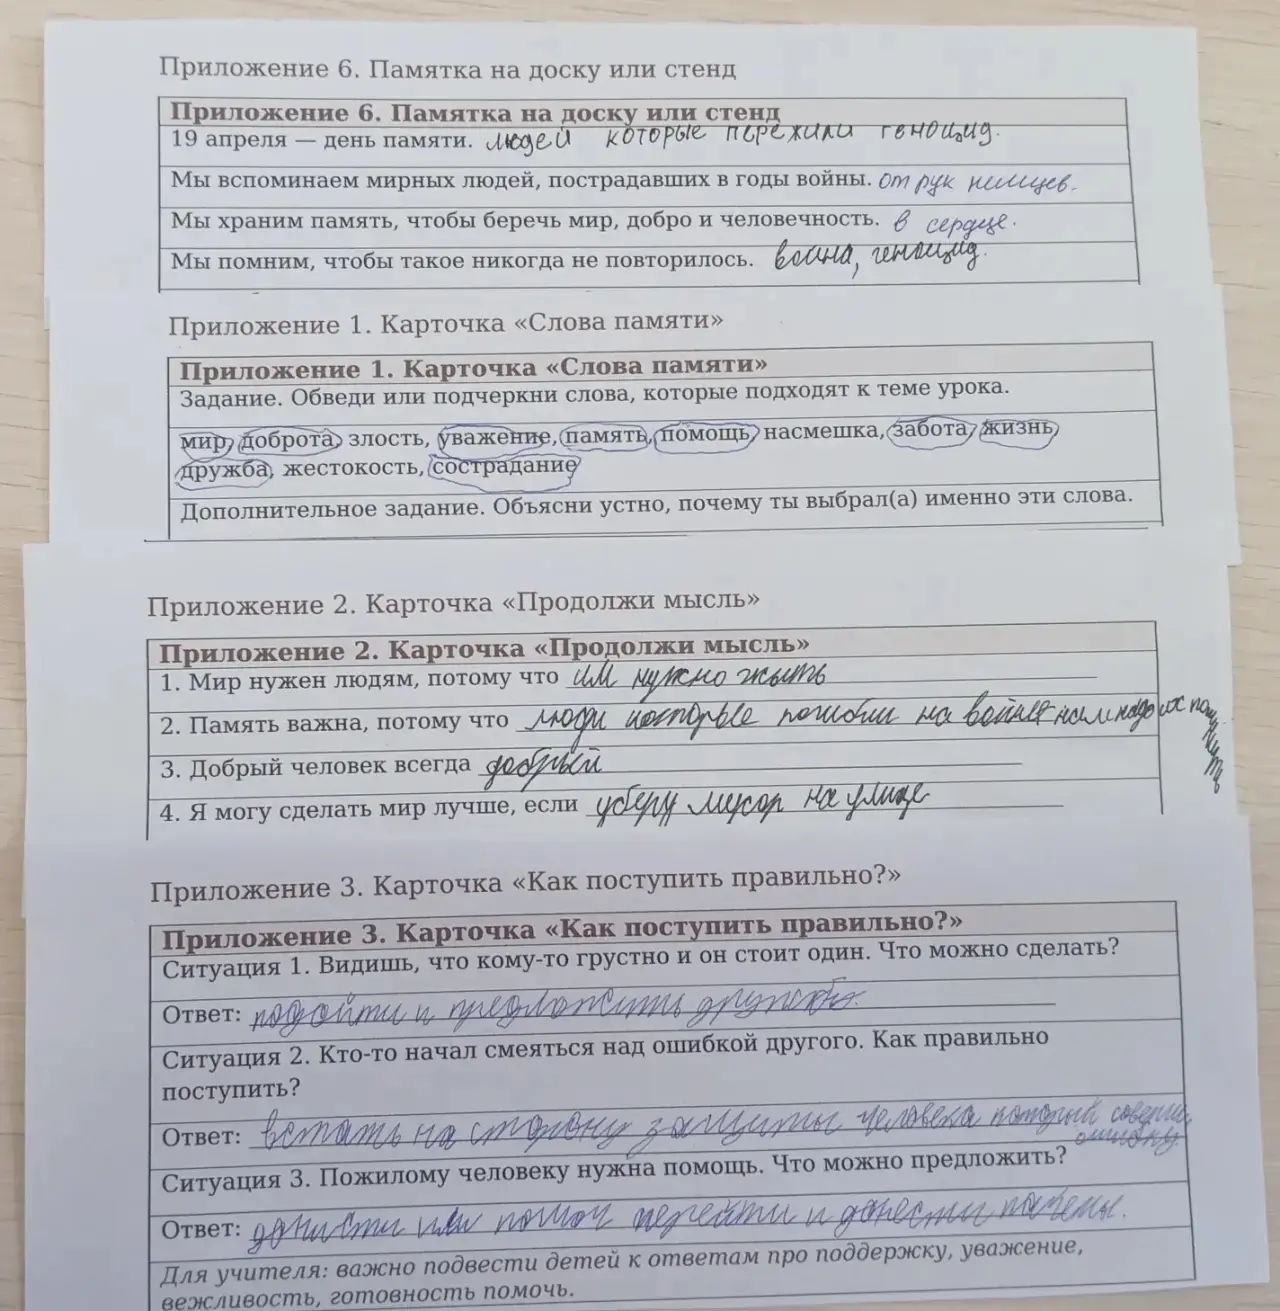 Приложение 6. Памятка на доску или стенд
Приложение 6. Памятка на доску или стенд
19 апреля — день памяти. людей которые пережили геноцид.
Мы вспоминаем мирных людей, пострадавших в годы войны. от рук немцев.
Мы храним память, чтобы беречь мир, добро и человечность. в сердце.
Мы помним, чтобы такое никогда не повторилось. война, геноцид.
Приложение 1. Карточка «Слова памяти»
Приложение 1. Карточка «Слова памяти»
Задание. Обведи или подчеркни слова, которые подходят к теме урока.
мир, доброта, злость, уважение, память, помощь, насмешка, забота, жизнь,
дружба, жестокость, сострадание
Дополнительное задание. Объясни устно, почему ты выбрал(а) именно эти слова.
Приложение 2. Карточка «Продолжи мысль»
Приложение 2. Карточка «Продолжи мысль»
1. Мир нужен людям, потому что им нужно жыть
2. Память важна, потому что люди которые погибли на войне нам надо их помнить
3. Добрый человек всегда добрый
4. Я могу сделать мир лучше, если уберу мусор на улице
Приложение 3. Карточка «Как поступить правильно?»
Приложение 3. Карточка «Как поступить правильно?»
Ситуация 1. Видишь, что кому-то грустно и он стоит один. Что можно сделать?
Ответ: подойти и предложить дружбу.
Ситуация 2. Кто-то начал смеяться над ошибкой другого. Как правильно
поступить?
Ответ: встать на сторону защиты человека который
ошибку.
Ситуация 3. Пожилому человеку нужна помощь. Что можно предложить?
Ответ: или перейти и донести
Для учителя: важно подвести детей к ответам про поддержку, уважение,
вежливость, готовность помочь.